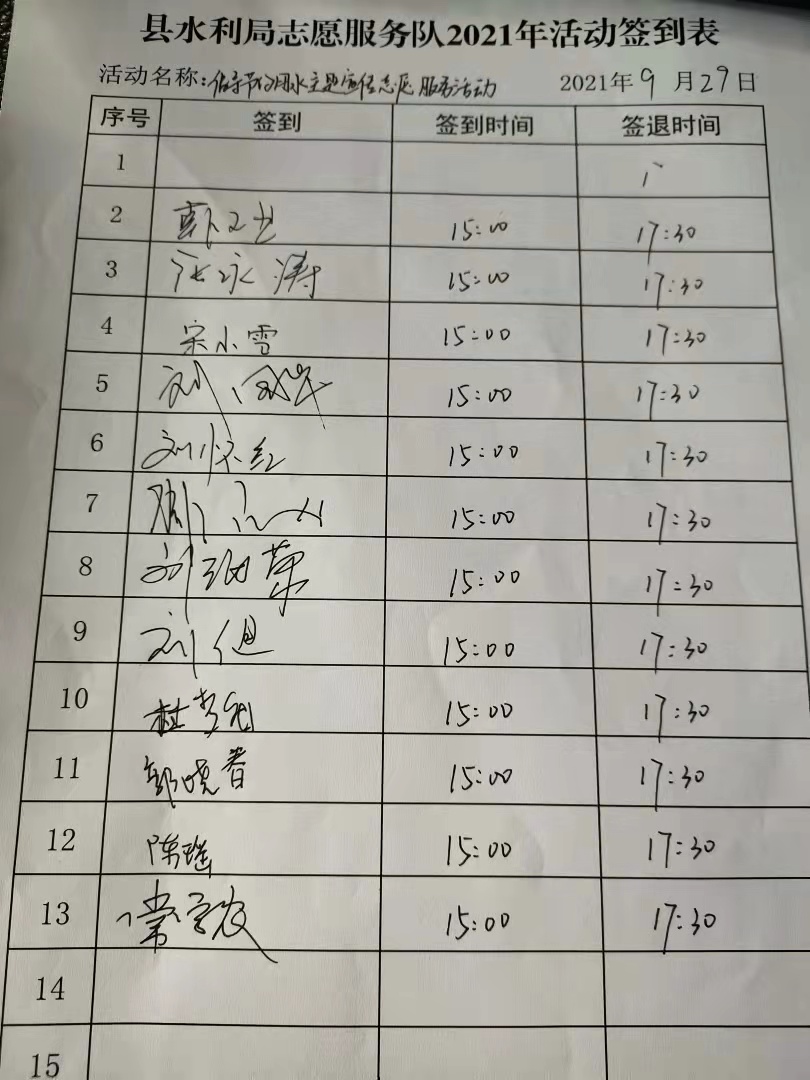 县水利局志愿服务队2021年活动签到表
活动名称:倡导节约用水主题宣传志愿服务活动 2021年9月29日
序号 签到 签到时间 签退时间
1
2 15:00 17:30
3 张永涛 15:00 17:30
4 宋小雪 15:00 17:30
5 刘 15:00 17:30
6 刘怀红 15:00 17:30
7 15:00 17:30
8 刘 荣 15:00 17:30
9 刘 15:00 17:30
10 杜 15:00 17:30
11 郭晓春 15:00 17:30
12 陈瑶 15:00 17:30
13 常 15:00 17:30
14
15